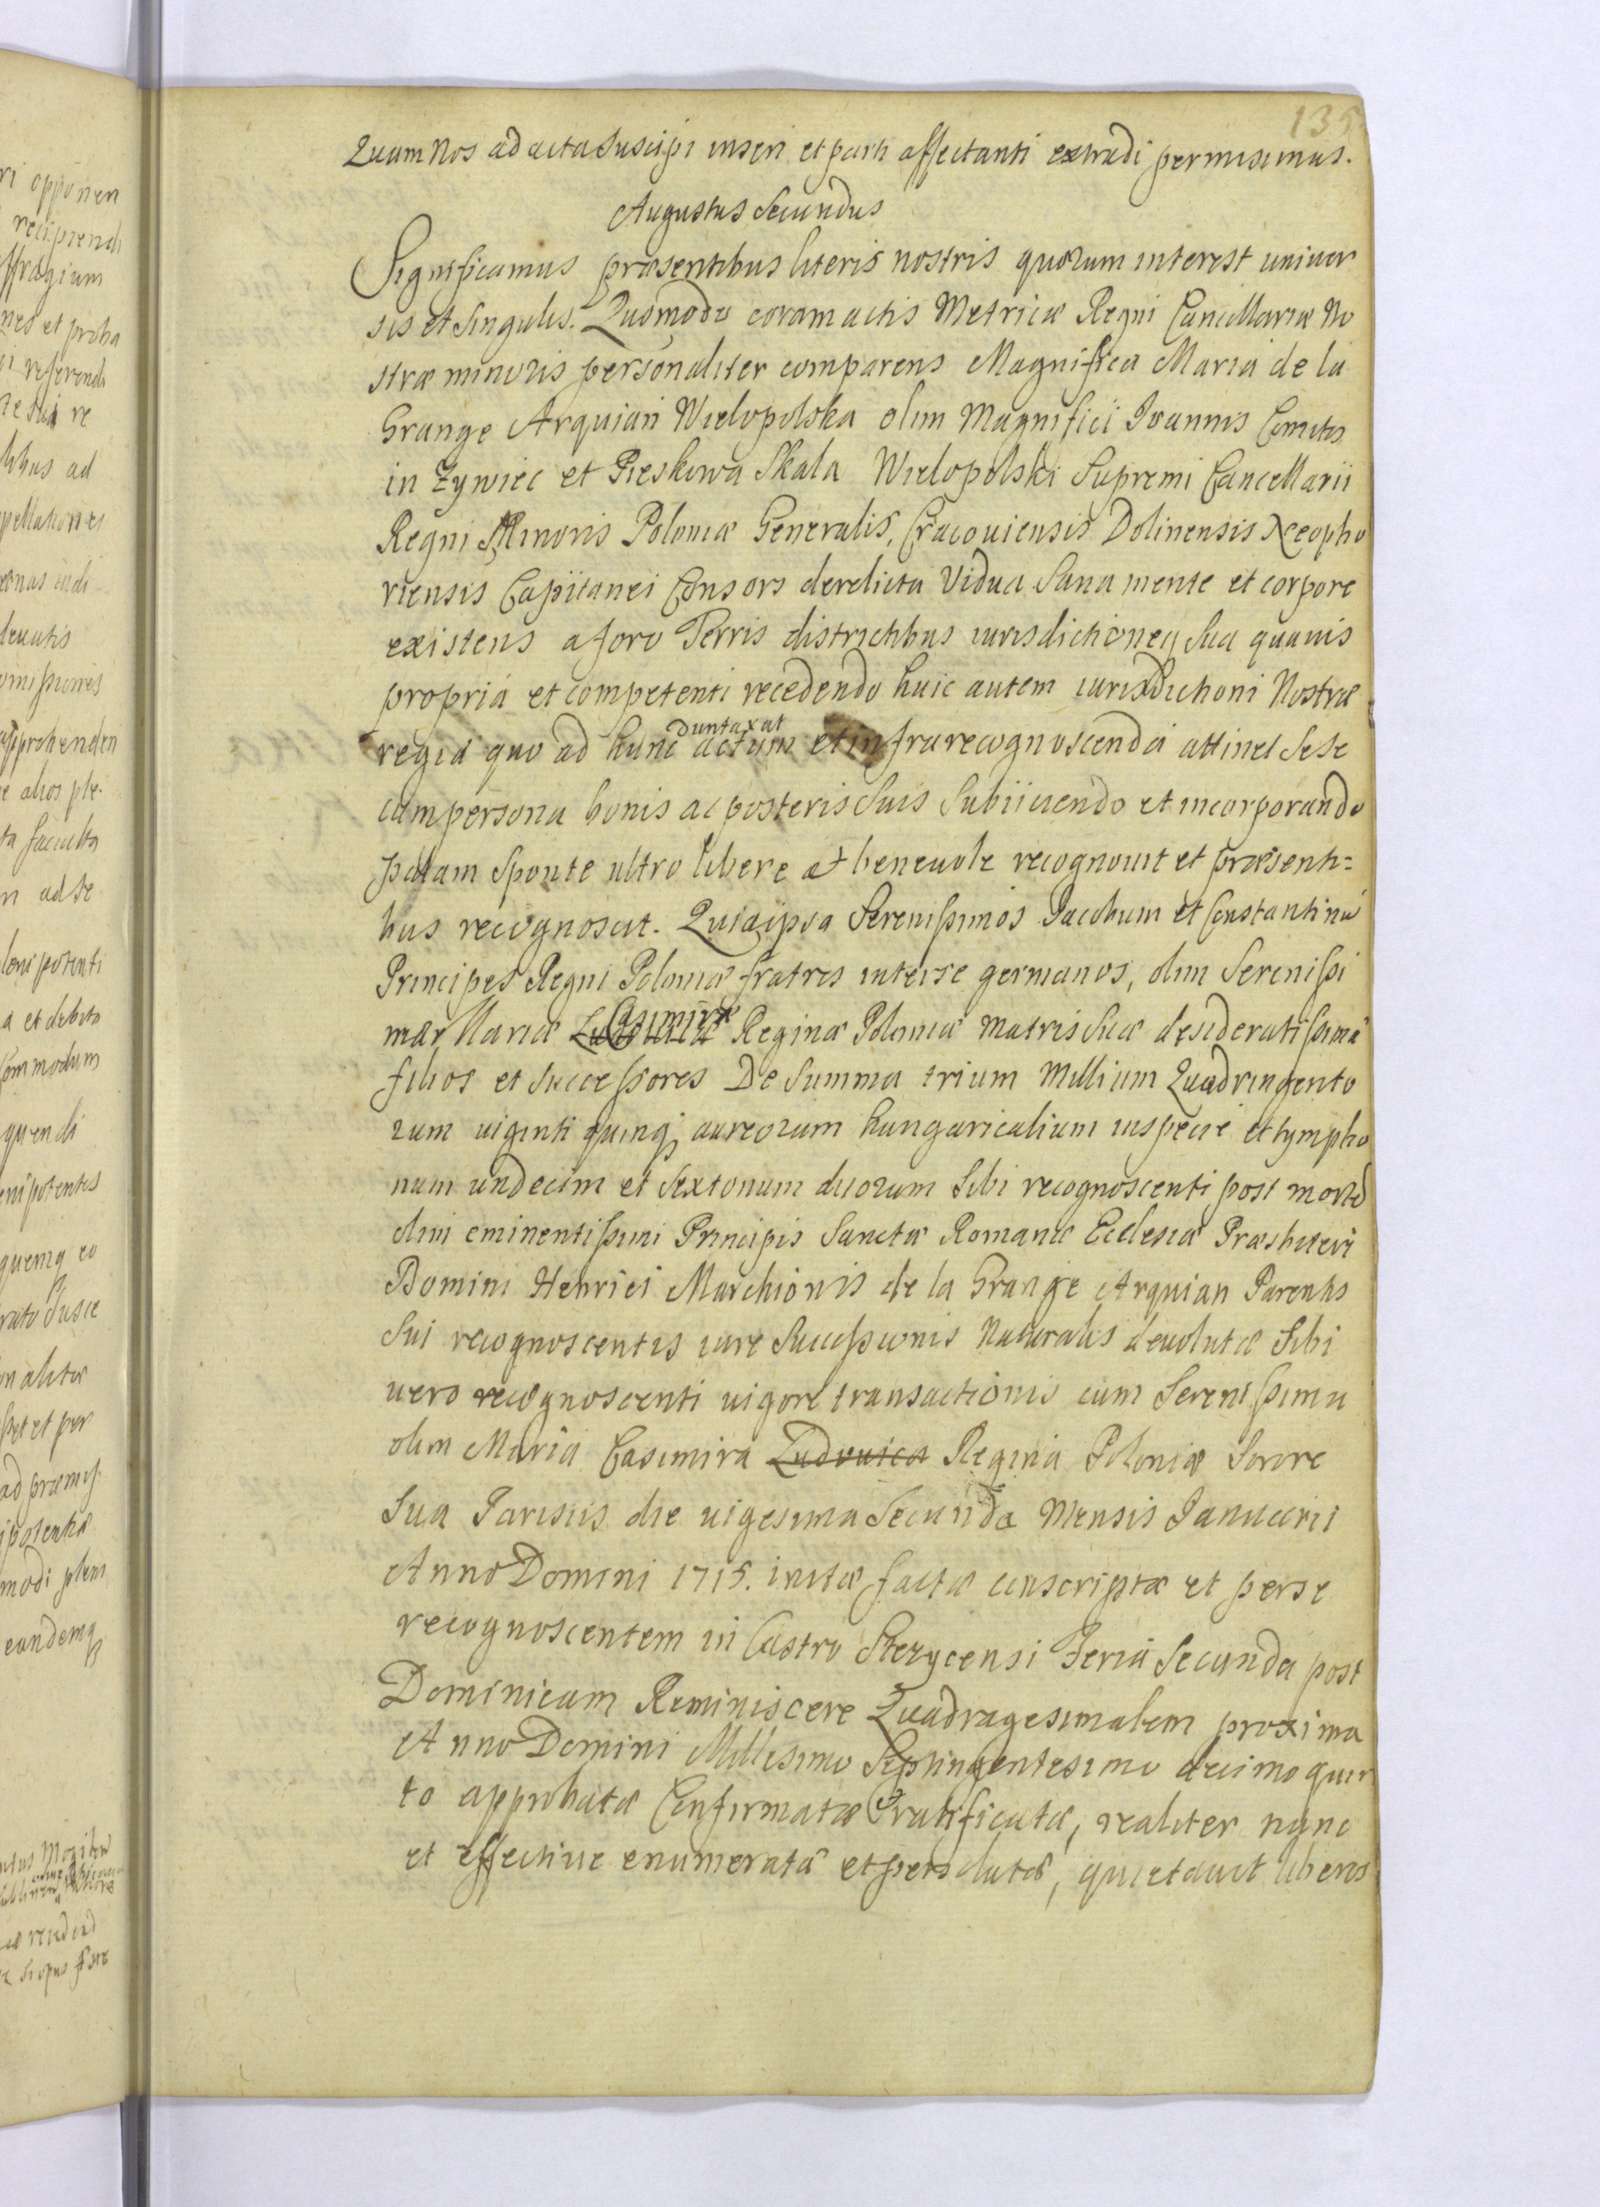 135
Quam Nos ad acta Suscipi inseri et parti affectanti extradi permisimus.
Augustus Secundus
Significamus præsentibus literis nostris quorum interest univer
sis et Singulis. Quomodo coram actis Metricæ Regni Cancellariæ No
stræ minoris personaliter comparens Magnifica Maria de la
Grange Arquian Wielopolska olim Magnifici Ioannis Comitis
in Zywiec et Pieskowa Skala Wielopolski Supremi Cancellarii
Regni Minoris Poloniæ Generalis, Cracoviensis Dolinensis Neopho
riensis Capitanei Consors derelicta Vidua Sana mente et corpore
existens a foro Terris districtibus iurisdictioneq Sua quavis
propria et competenti recedendo huic autem iurisdictioni Nostræ
duntaxat
regiæ quo ad hunc actum et infrarecognoscenda attinet Sese
cum persona bonis ac posteris Suis Subiiciendo et incorporando
palam Sponte ultro libere et benevole recognovit et præsenti=
bus recognoscit. Quia ipsa Serenissimos Jacobum et Constantinū
Principes Regni Poloniæ fratres inter se germanos, olim Serenissi
Casimiræ
mæ Mariæ Ludovicæ Reginæ Poloniæ Matris Suæ desideratissimæ
filios et Successores De Summa trium Millium Quadringento
rum viginti quinq aureorum hungaricalium in specie et tympho
num undecim et Sextonum duorum Sibi recognoscenti post mortē
olim eminentissimi Principis Sanctæ Romanæ Ecclesiæ Præsbiteri
Domini Henrici Marchionis de la Grange Arquian Parentis
Sui recognoscentis iure Successionis Naturalis devolutæ Sibi
vero recognoscenti vigore transactionis cum Serenissima
olim Maria Casimira Ludovica Regina Poloniæ Sorore
Sua Parisiis die vigesima Secunda Mensis Januarii
Anno Domini 1715. initæ factæ conscriptæ et per se
recognoscentem in Castro Stezycensi Feria Secunda post
Dominicam Reminiscere Quadragesimalem proxima
Anno Domini Millesimo Septingentesimo decimo quin
to approbatæ Confirmatæ ratificatæ, realiter nunc
et effective enumeratæ et persolutæ, quietavit liberos